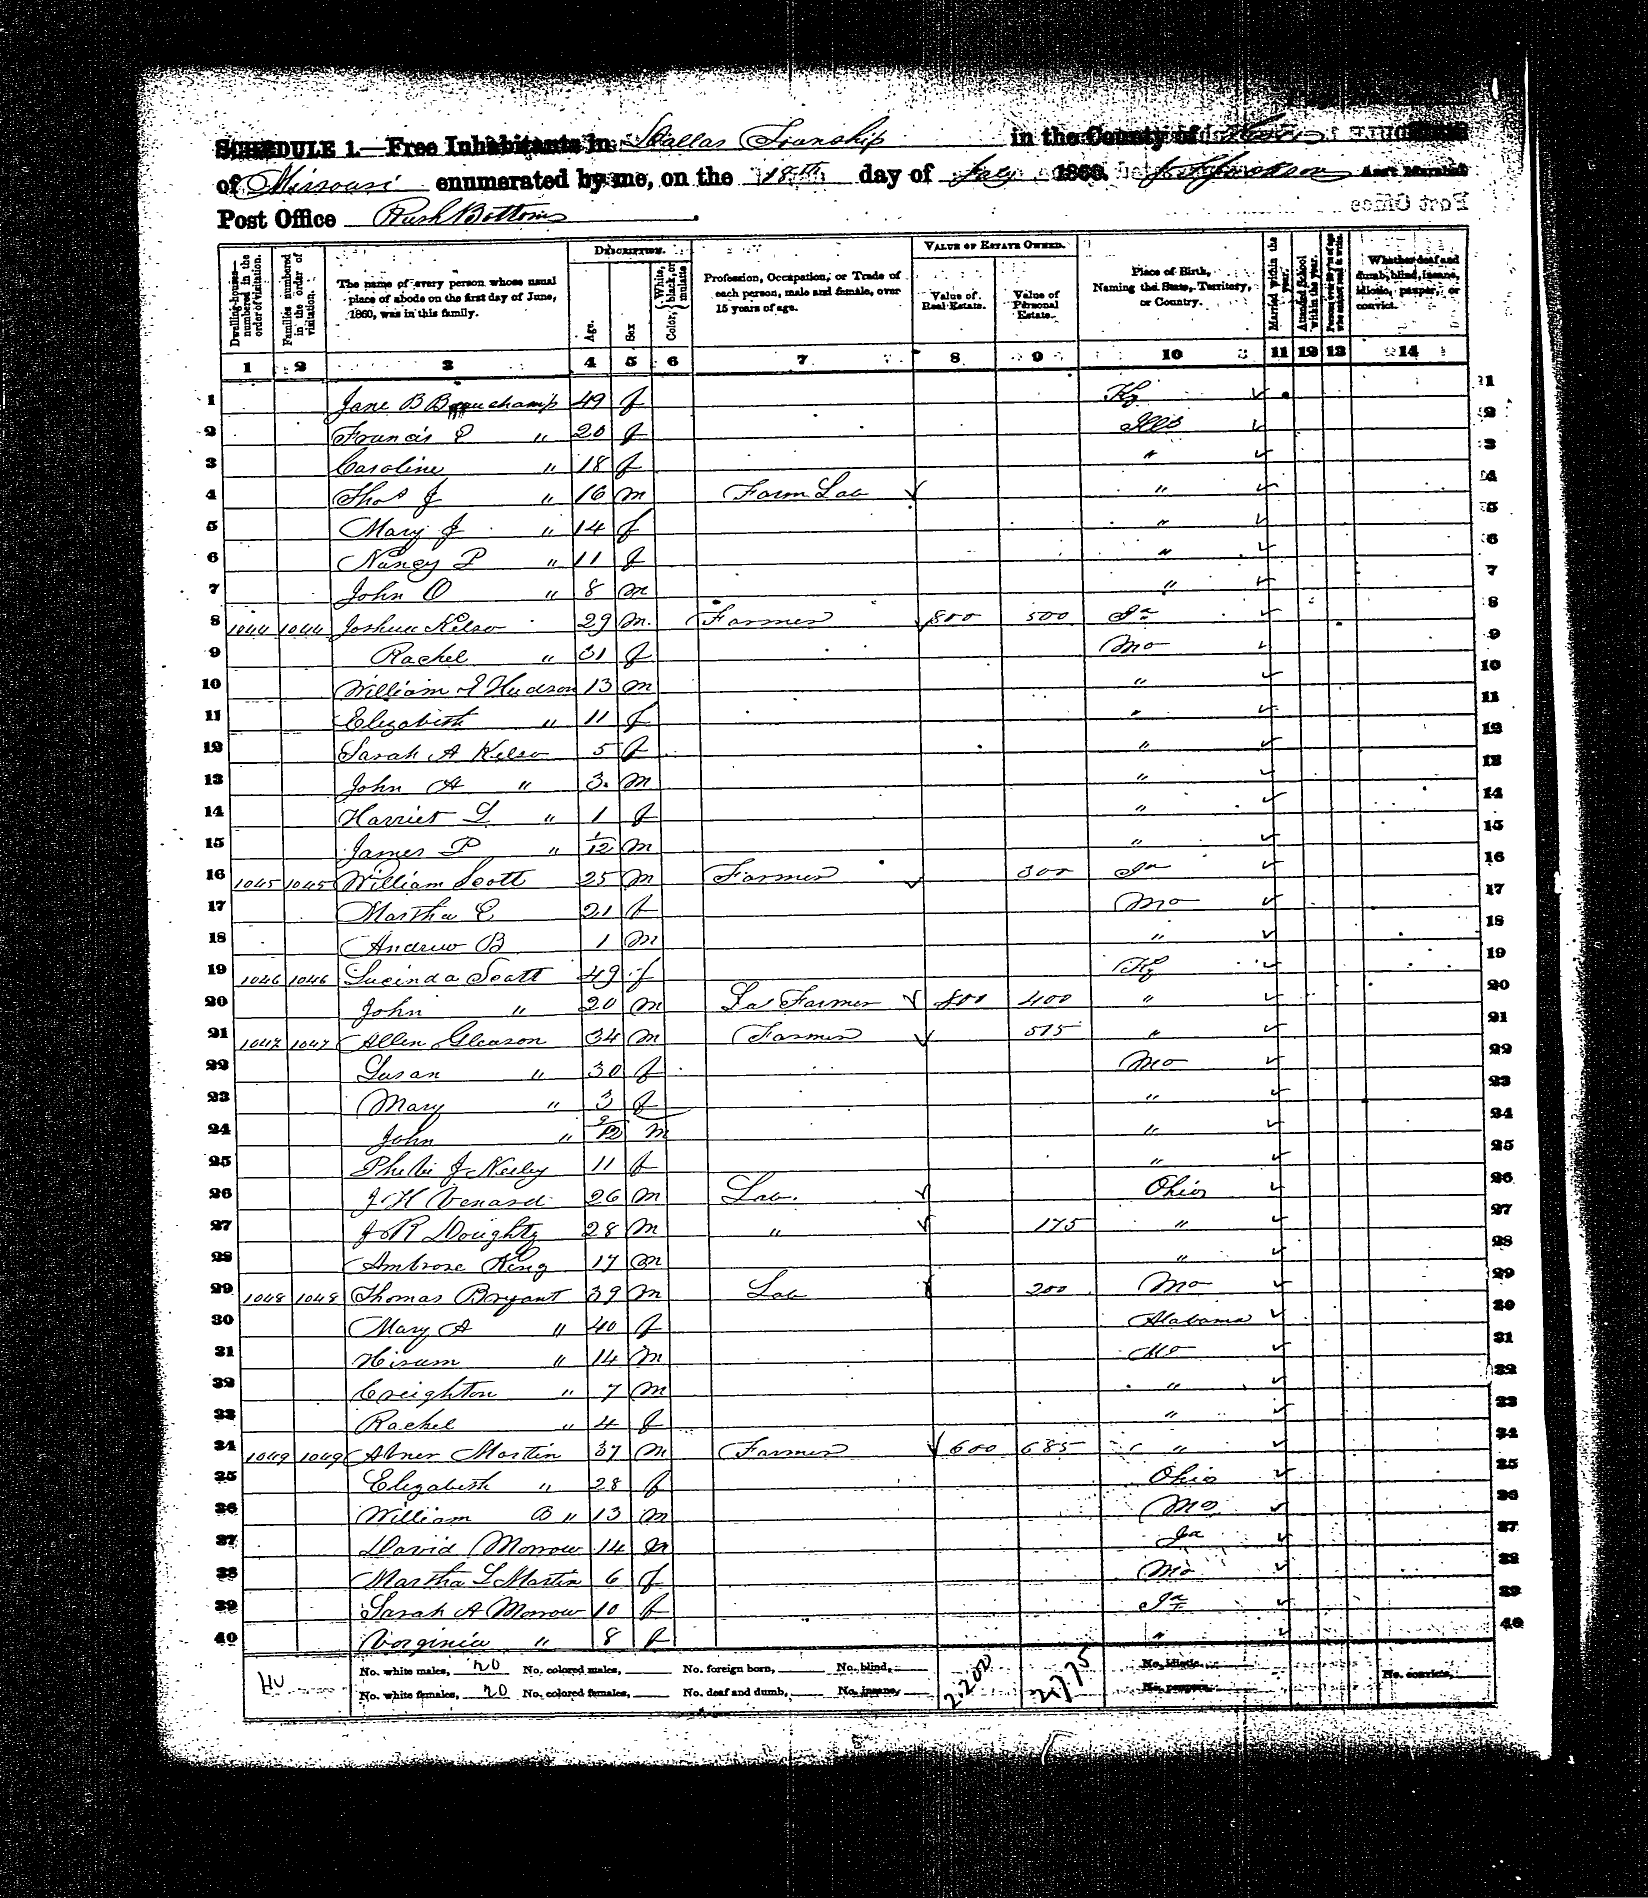 SCHEDULE 1.—Free Inhabitants in Dallas Township in the County of
of Missouri enumerated by me, on the 18th day of July 1860. Ass't Marshal
Post Office Rush Bottom
Post Office
DESCRIPTION. VALUE OF ESTATE OWNED.
Dwelling-houses— numbered in the order of visitation. Families numbered in the order of visitation. The name of every person whose usual place of abode on the first day of June, 1860, was in this family. Age. Sex Color, White, black, or mulatto Profession, Occupation, or Trade of each person, male and female, over 15 years of age. Value of Real Estate. Value of Personal Estate. Place of Birth, Naming the State, Territory, or Country. Married within the year. Attended School within the year. Persons over 20 y'rs of age who cannot read & write. Whether deaf and dumb, blind, insane, idiotic, pauper, or convict.
1 2 3 4 5 6 7 8 9 10 11 12 13 14
1 Jane B Beauchamp 49 f Ky 1
2 Francis E " 20 f Ills 2
3 Caroline " 18 f " 3
4 Thos J " 16 m Farm Lab " 4
5 Mary J " 14 f " 5
6 Nancy P " 11 f " 6
7 John O " 8 m " 7
8 1044 1044 Joshua Kelso 29 m Farmer 800 500 Ia 8
9 Rachel " 31 f Mo 9
10 William Hudson 13 m " 10
11 Elizabeth " 11 f " 11
12 Sarah A Kelso 5 f " 12
13 John A " 3 m " 13
14 Harriet L " 1 f " 14
15 James P " 1/12 m " 15
16 1045 1045 William Scott 25 m Farmer 300 Ia 16
17 Martha E 21 f Mo 17
18 Andrew B 1 m " 18
19 1046 1046 Lucinda Scott 49 f Ky 19
20 John " 20 m Farmer 800 400 " 20
21 1047 1047 Allen Gleason 34 m Farmer 515 " 21
22 Susan " 30 f Mo 22
23 Mary " 3 f " 23
24 John " 9/12 m " 24
25 Phebe J Neeley 11 f " 25
26 J H Venard 26 m Lab. Ohio 26
27 J R Doughty 28 m " 175 " 27
28 Ambrose King 17 m " 28
29 1048 1048 Thomas Bryant 39 m Lab 200 Mo 29
30 Mary A " 40 f Alabama 30
31 Hiram " 14 m Mo 31
32 Creighton " 7 m " 32
33 Rachel " 4 f " 33
34 1049 1049 Abner Martin 37 m Farmer 600 685 " 34
35 Elizabeth " 28 f Ohio 35
36 William B " 13 m Mo 36
37 David Morrow 14 m Ia 37
38 Martha L Martin 6 f Mo 38
39 Sarah A Morrow 10 f Ia 39
40 Virginia " 8 f " 40
No. white males, 20 No. colored males, No. foreign born, No. blind, No. idiotic, No. convicts,
No. white females, 20 No. colored females, No. deaf and dumb, No. insane, No. paupers, 2,200 2,775